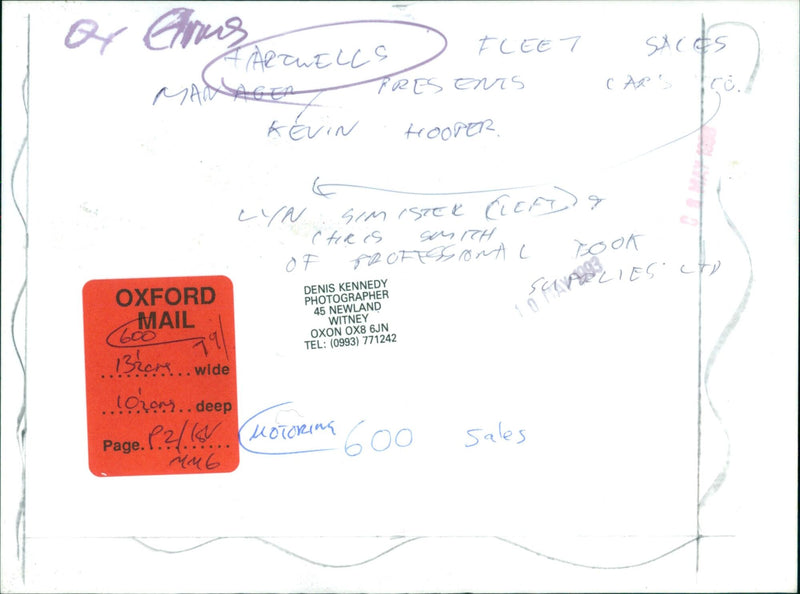 Ox
HARTWELLS FLEET SALES
MANAGER PRESENTS CAR'S TO.
KEVIN HOOPER.
LYN SIMISTER (LEFT) &
CHRIS SMITH
OF PROFESSIONAL BOOK
SUPPLIES LTD
MAY 1993
10 MAY 1993
DENIS KENNEDY
PHOTOGRAPHER
45 NEWLAND
WITNEY
OXON OX8 6JN
TEL: (0993) 771242
OXFORD
MAIL
600
13½cms wide
10½cms deep
Page. P2/
MM6
MOTORING 600 Sales